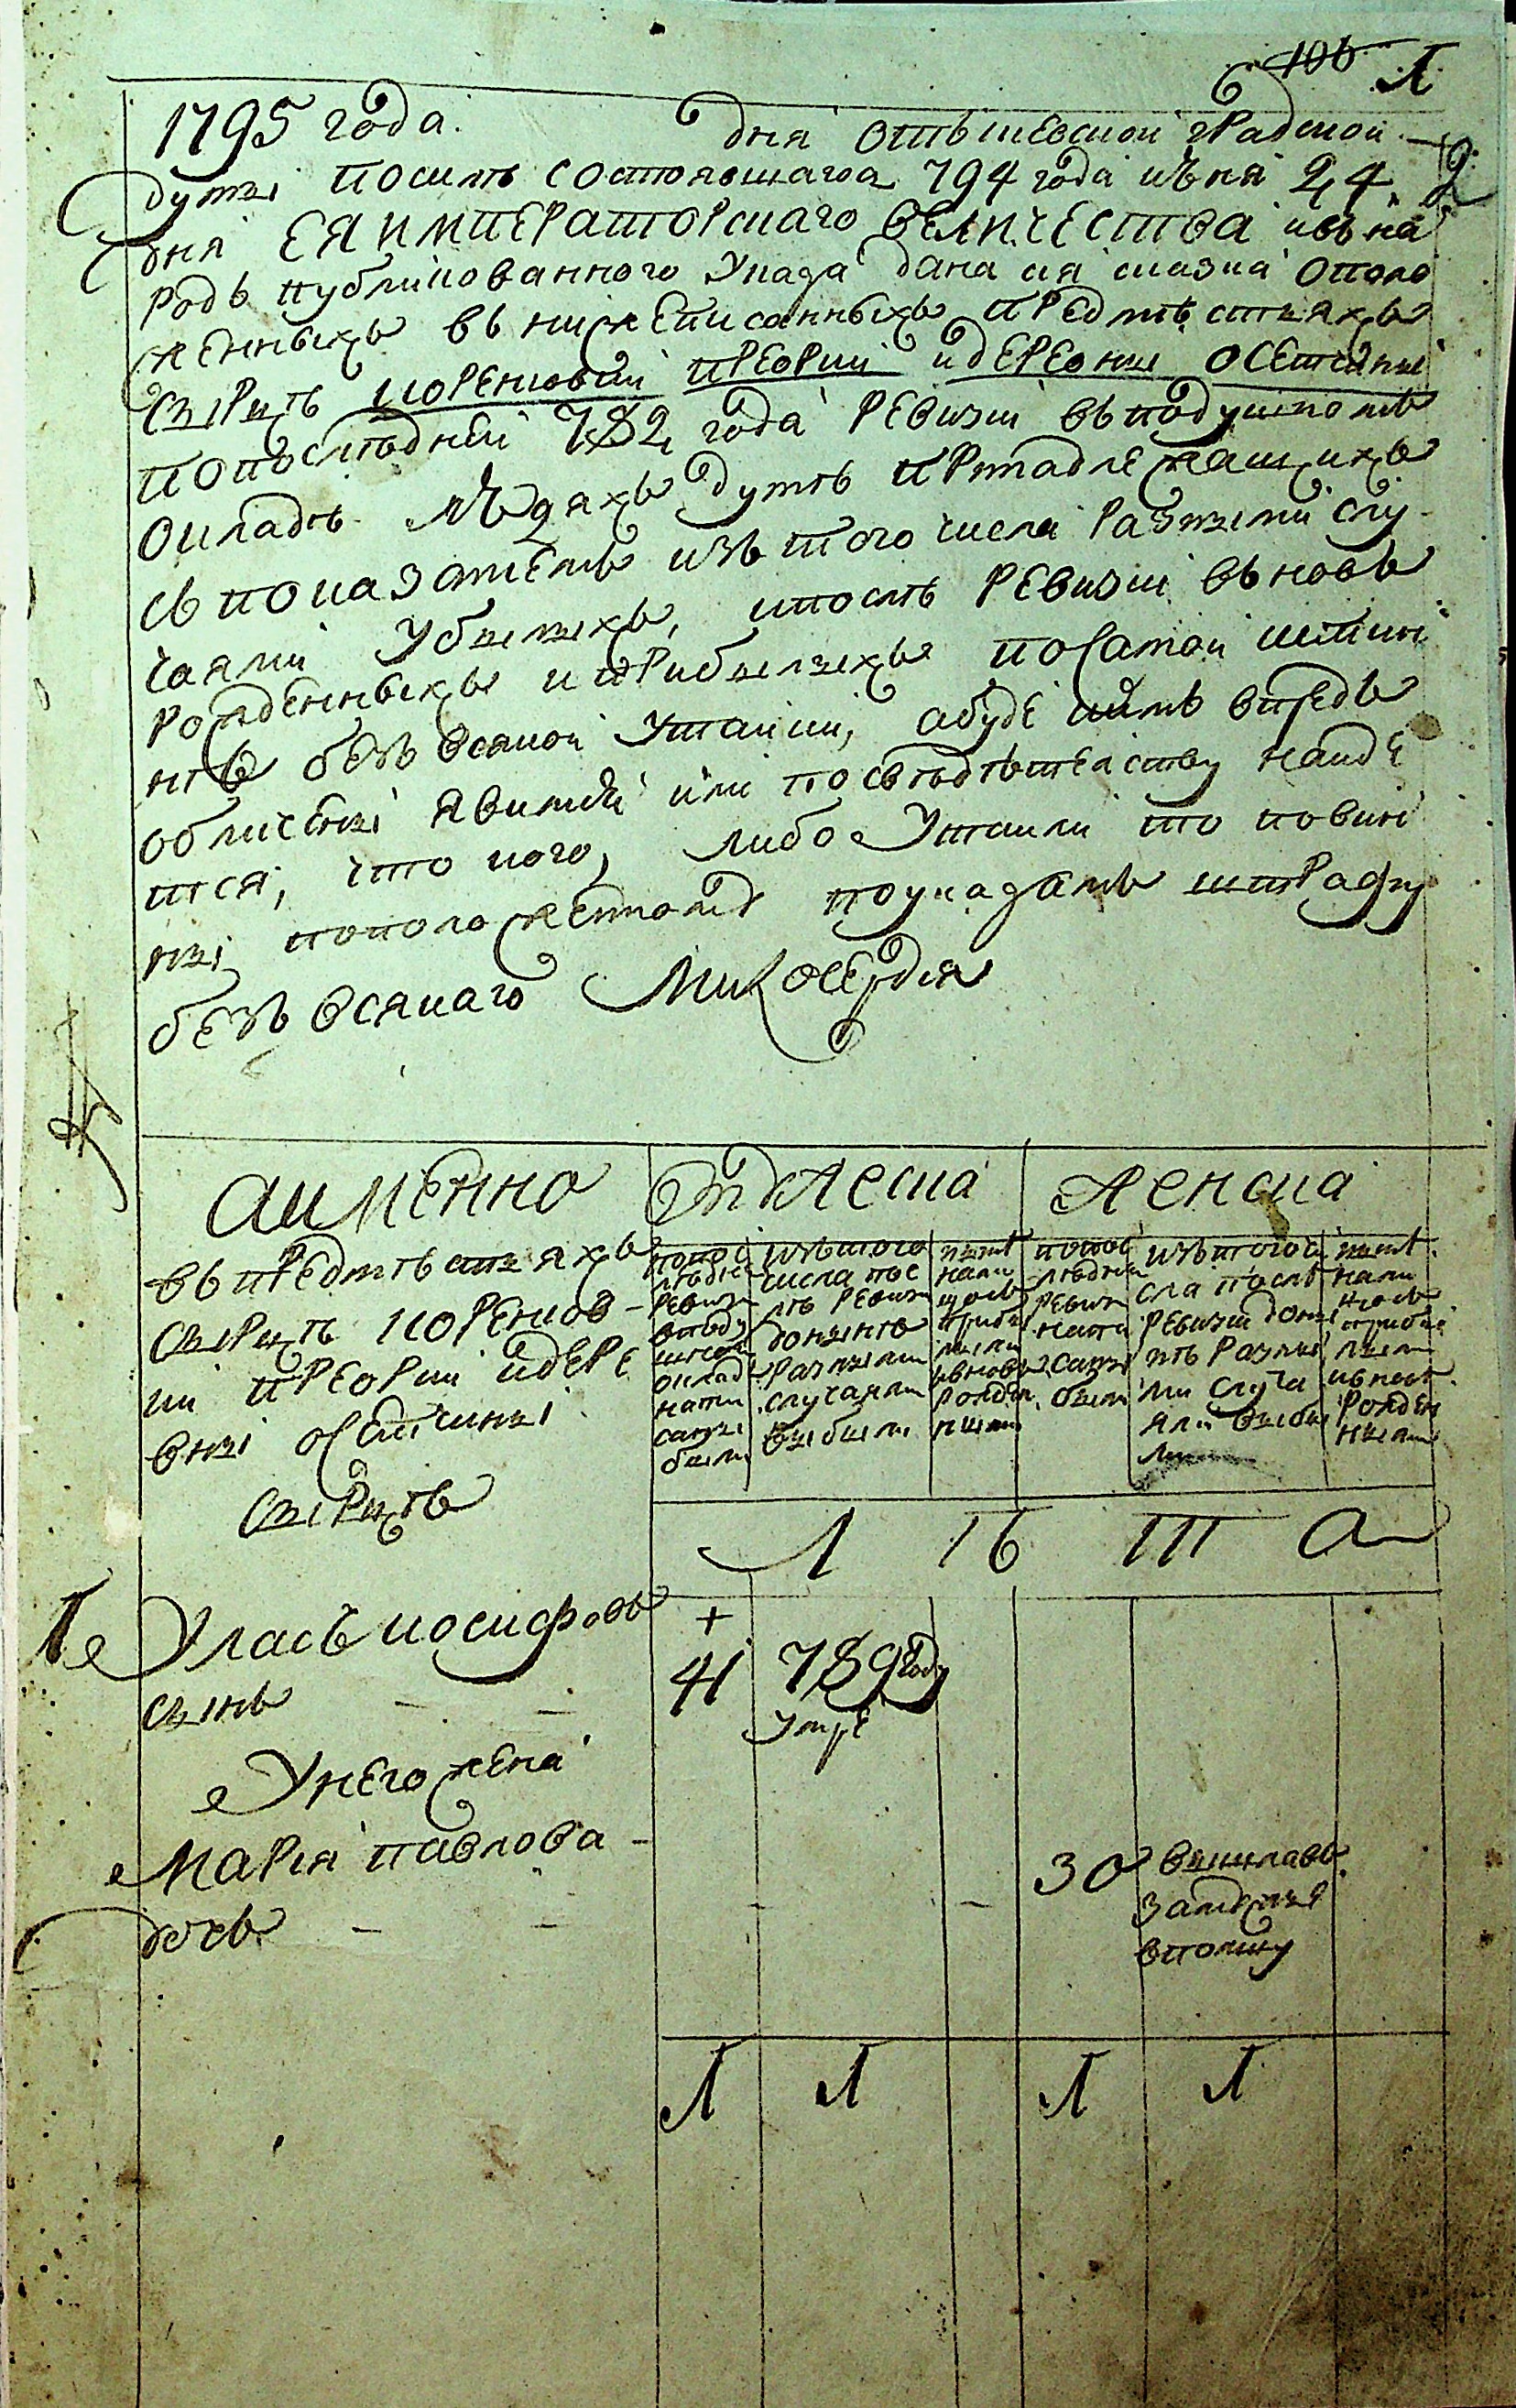 106 1
1795 года. дня отъ шевской градской
думы посилѣ состоявшагося 794 года июня 24.
дня ЕЯ ИМПЕРАТОРСКАГО ВЕЛИЧЕСТВА ивъ на
родъ публикованного Указа дана сия сказка ополо
женныхъ въ нижеписанныхъ предмѣстьяхъ
сырцѣ кореновки преорки идеревни осетчины
попоследней 782 года ревизии въподушномъ
окладѣ людяхъ думѣ принадлежащихъ
съ показаниемъ изъ того числа разными слу
чаями убылыхъ, ипослѣ ревизии вьновь
рожденныхъ иприбылыхъ посамой истин
нѣ безъ всякой утайки, абуде кѣмъ впредь
обличены явимся или посвѣдѣтелству найде
тся, что кого, либо утаили то повин
ны поположенномъ поуказамъ штрафу
безъ всякаго милосердия
аименно
въ предмѣстьяхъ
сырцѣ коренов-
ки преорки идере
вни осетчины
сырцѣ
мужеска женска
попос
лѣдней
ревизи
вподу
шном
окладе
напи
саны
были
изътого
числа пос
лѣ ревизи
донынѣ
разными
случаями
выбыли
нынѣ
нали
цо съ
прибы
лыми
ивновь
рожден
ными
попос
лѣдней
ревизи
напи
саны
были
изътого чи
сла послѣ
ревизии доны
нѣ разны
ми случа
ями выбы
ли
нынѣ
нали
цо съ
прибы
лыми
ивновь
рожден
ными
Л Ѣ Т А
1 Уласъ иосифовъ
сынъ - - + 41 789 году
умре
Унего жена
Мария павлова -
дочь - - - - 30 вышлавъ
замужъ
вполшу
1 1 1 1